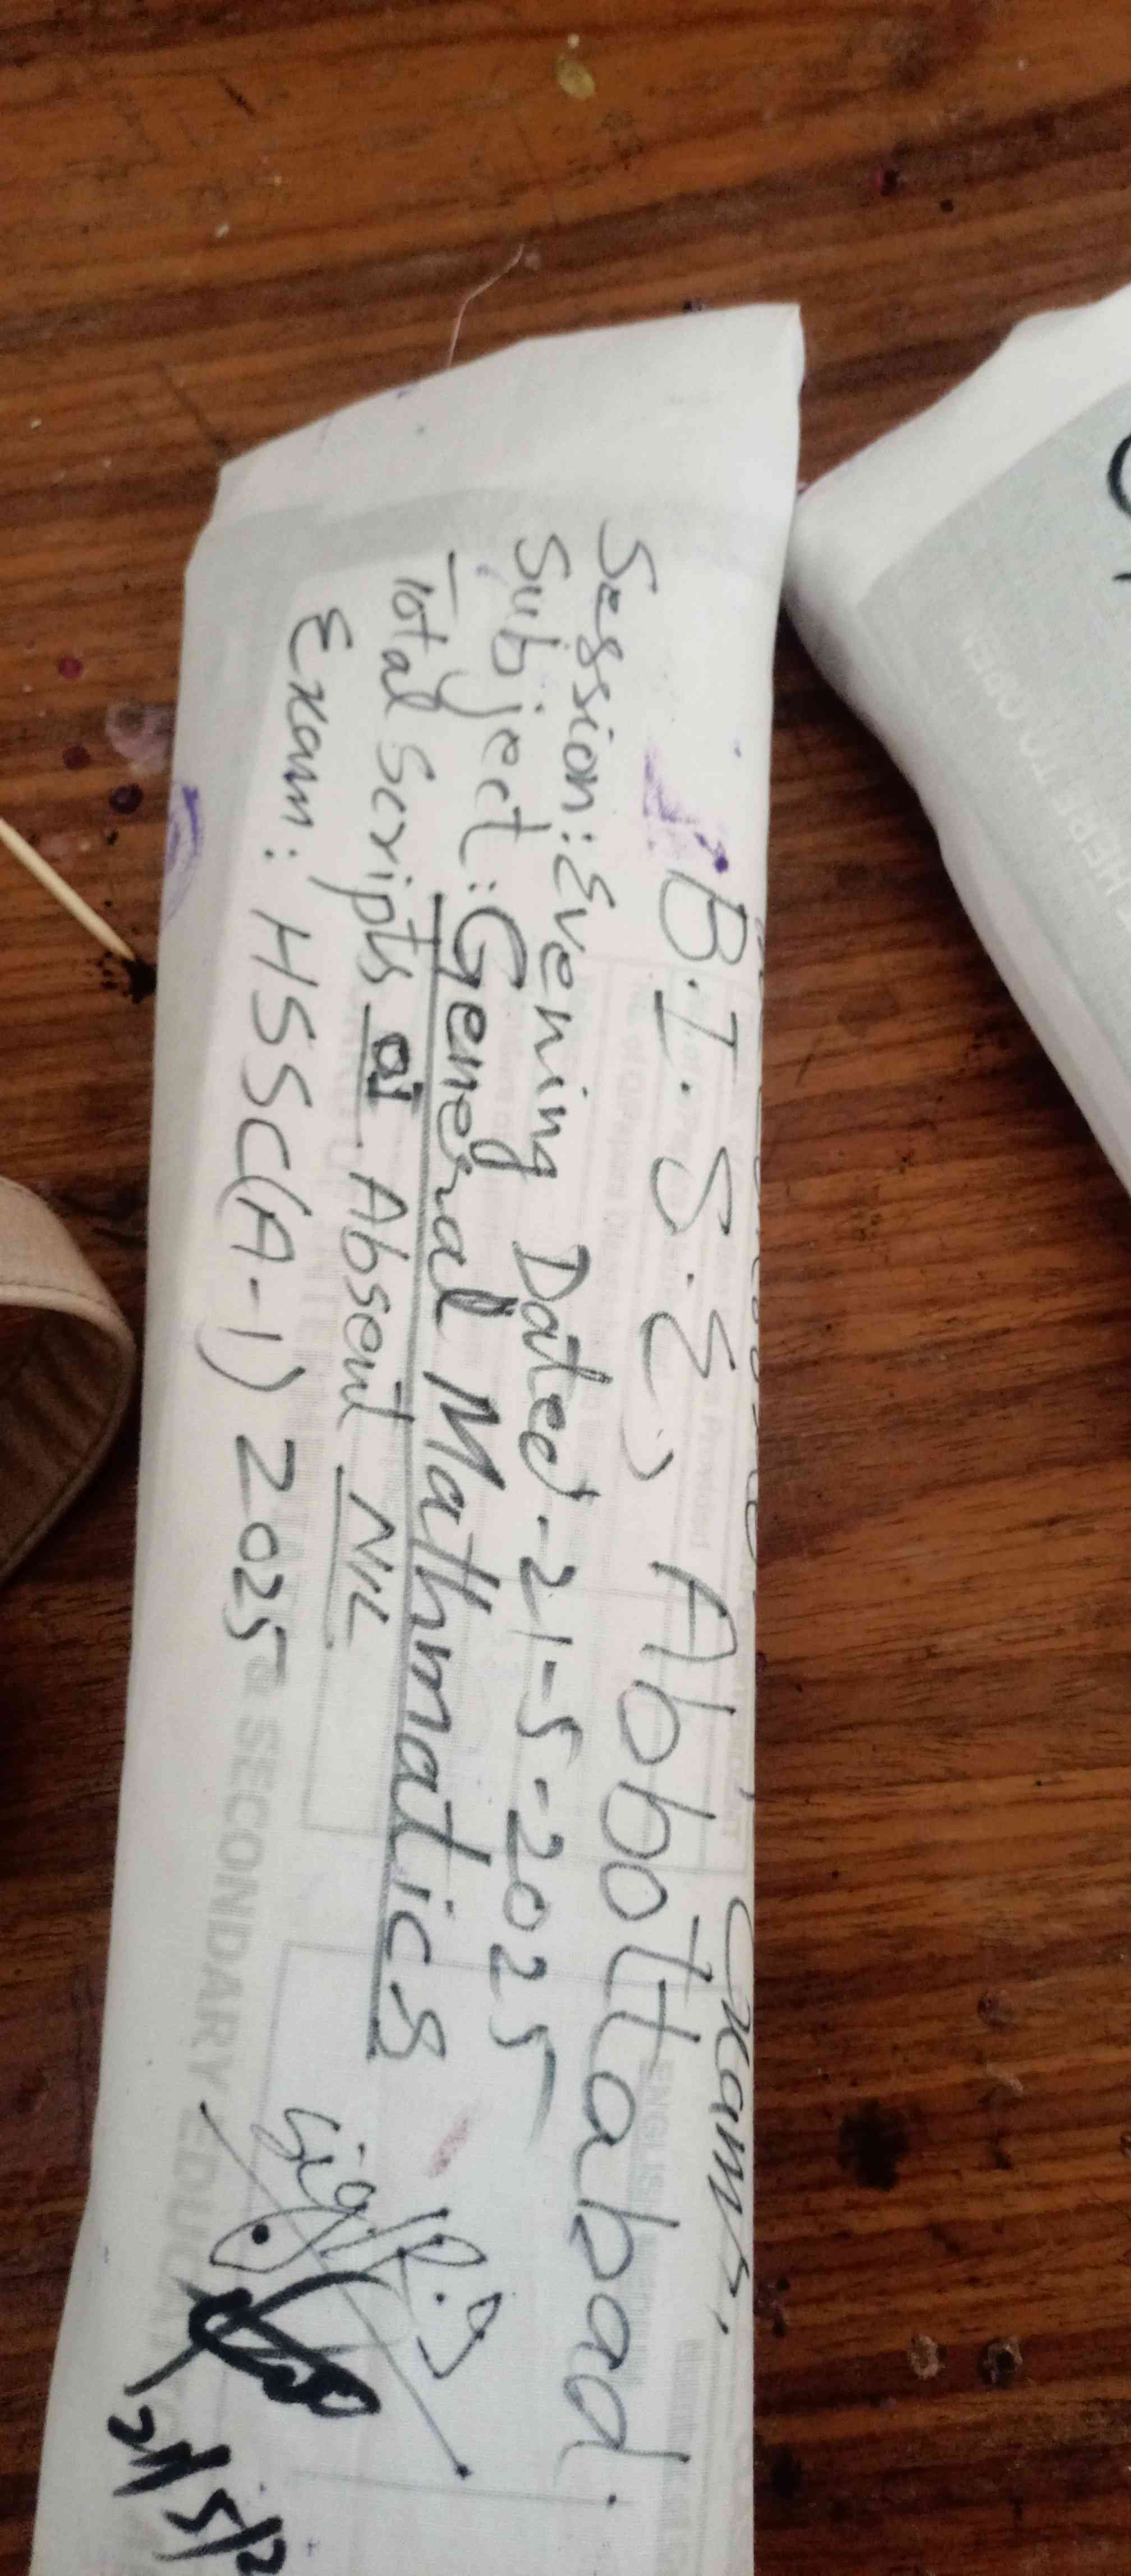 Exams,
B.I.S.E, Abbottabad.
Session: Evening Dated-21-5-2025
Subject: General Mathmatics
Total Scripts 01 Absent NIL
Exam: HSSC(A-1) 2025
SECONDARY EDUCAT
Sig
TO OPEN